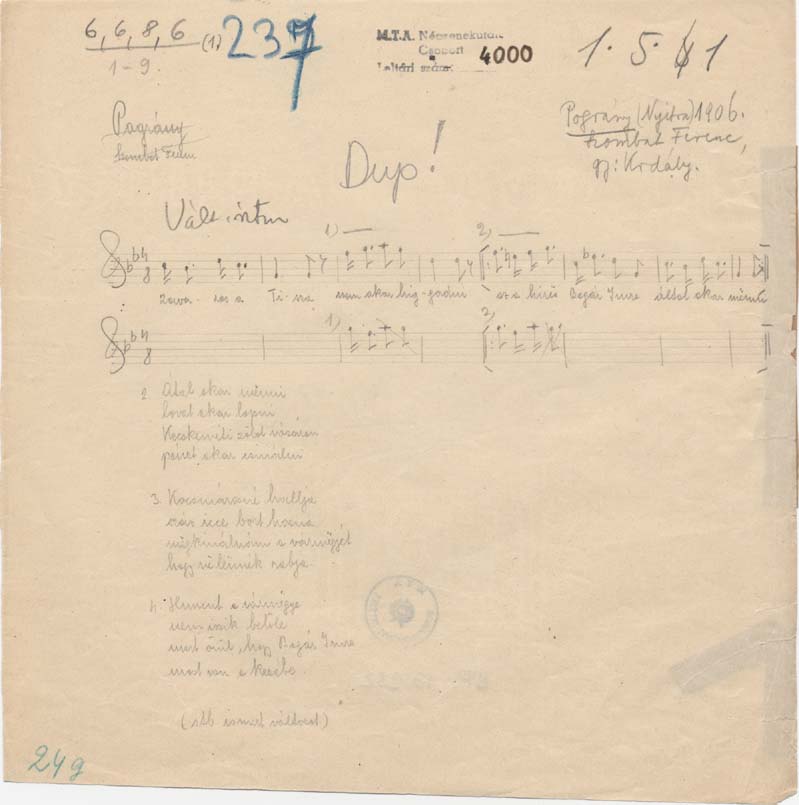 6, 6, 8, 6 (1)
1-9.
237
M.T.A. Népzenekutató
Csoport
Leltári szám: 4000
1. 5. 1
Pográny
Szombat Ferenc
Pográny (Nyitra) 1906.
Szombat Ferenc,
gy: Kodály.
Dup!
1)
2)
Zava-ros a Ti-sza nem akar hig-gadni ez a hires Bogár Imre által akar mënni
1)
2)
2. Által akar mënni
lovat akar lopni
Kecskeméti zöld vásáron
pénzt akar csinálni
3. Kocsmárosné hallja
száz icce bort hozna
mëgkinálnám a vármëgyét
hogy në lënnék rabja.
4. Huncut a vármëgye
nem iszik belőle
mert örűl, hogy Bogár Imre
most van a kezébe.
(stb ismert változat)
249